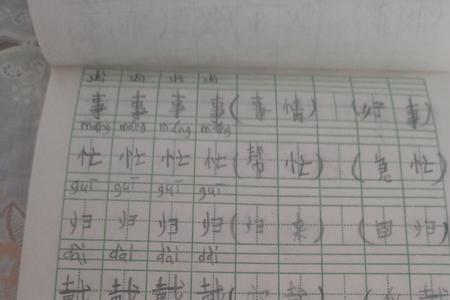 shì shì shì shì
事 事 事 事 (事 情) (好 事)
máng máng máng máng
忙 忙 忙 忙 (帮 忙) (急 忙)
guī guī guī guī
归 归 归 归 (归 ) (回 归)
dài dài dài dài
戴 戴 戴 戴